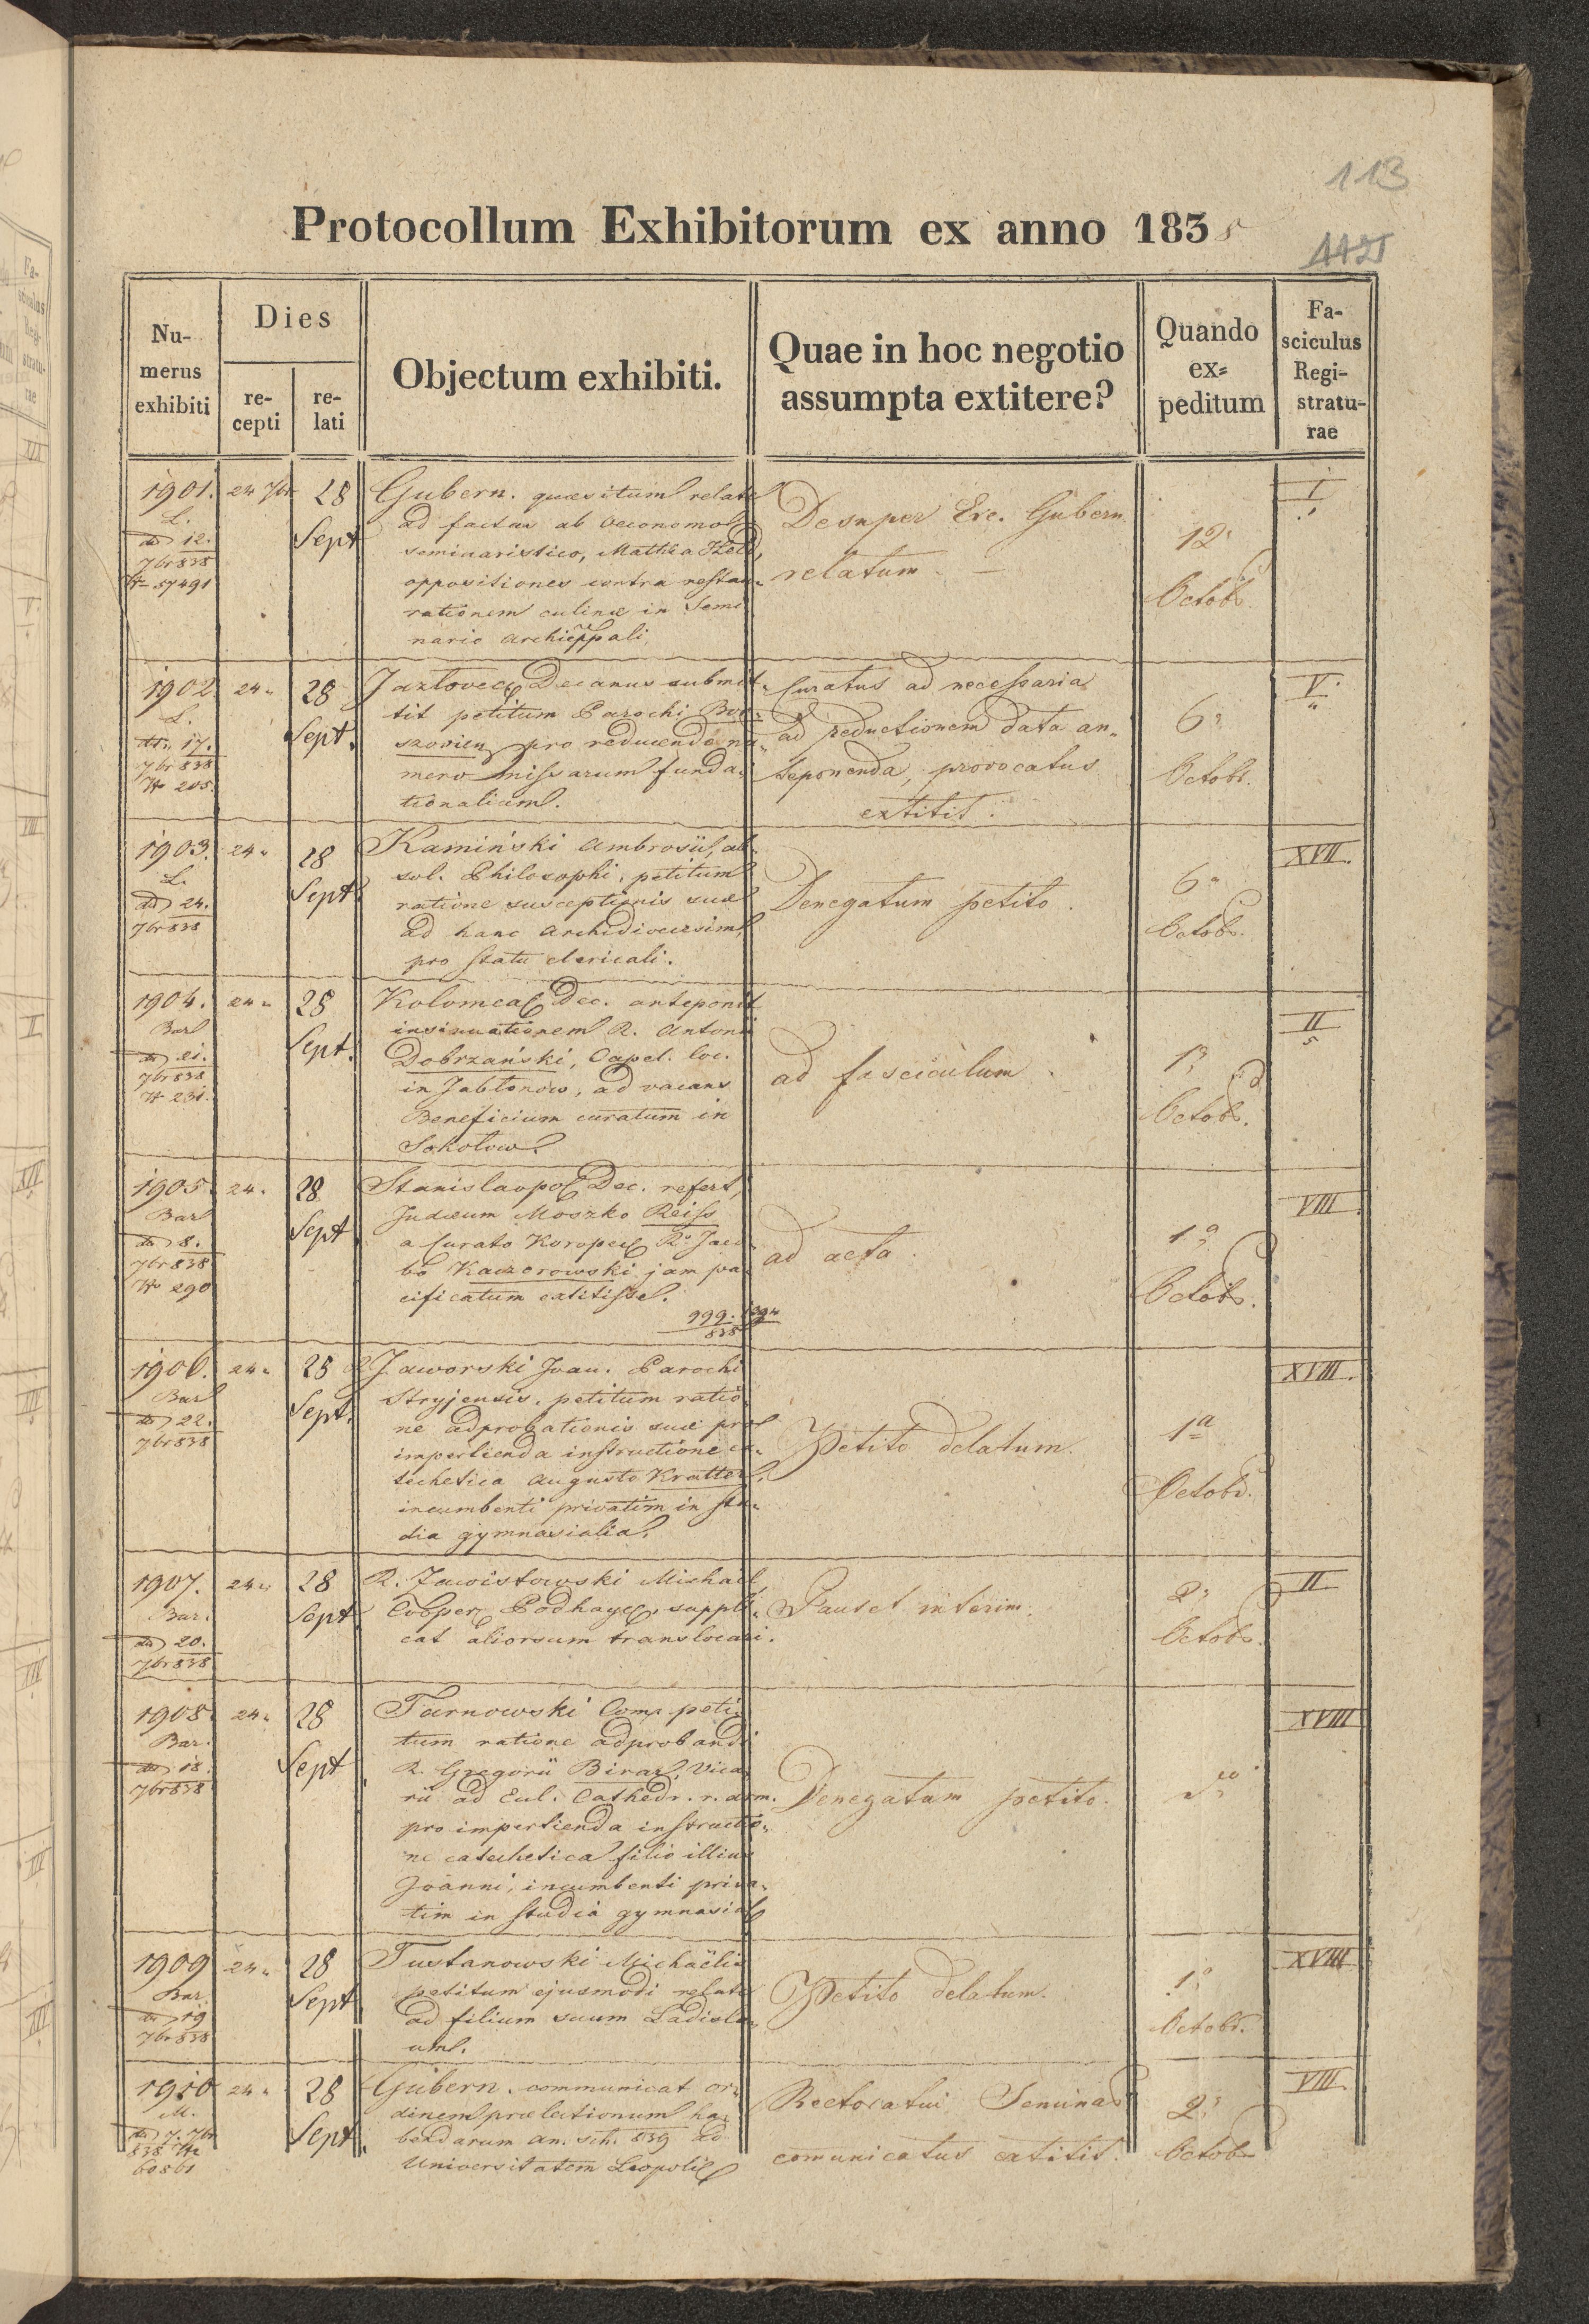 113
Protocollum Exhibitorum ex anno 1838
Numerus exhibiti
Dies
recepti
relati
Objectum exhibiti.
Quae in hoc negotio assumpta extitere?
Quando expeditum
Fasciculus Registraturae
1901.
L.
dd 12.
7br 838
N 57491
24 7br
28
Sept
Gubern. quaesitum relate
ad factas ab oeconomo
seminaristico, Mathia
oppositiones contra restau-
rationem culinae in Semi
nario Archieppali
Desuper Exc. Gubern.
relatum. —
12
Octobr.
I
1902.
L.
dd 17.
7br 838
N 205.
24 "
28
Sept.
Jazlovec Decanus submit-
tit petitum Parochi Bor-
szovien pro reducendo nu-
mero missarum funda-
tionalium.
Curatus ad necessaria
ad reductionem data an-
teponenda, provocatus
extitit.
6
Octobr.
V
1903.
L.
dd 24.
7br 838
24 "
28
Sept.
Kamiński Ambrosii, ab-
sol. Philosophi, petitum
ratione susceptionis suae
ad hanc Archidioecesim,
pro statu clericali.
Denegatum petito.
6
Octobr.
XVII.
1904.
Bar
dd 21.
7br 838
N 231.
24 "
28
Sept.
Kolomeae Dec. anteponit
insinuationem R. Antonii
Dobrzański, Capel. loc.
in Jabłonow, ad vacans
Beneficium curatum in
Sokołow.
ad fasciculum.
1
Octobr.
II
5
1905.
Bar
dd 8.
7br 838
N 290
24 "
28
Sept
Stanislaopol Dec. refert,
Judaeum Moszko Reiss
a Curato Koropec Ro Jaco
bo Kaczorowski jam pa-
cificatum extitisse.
999.
838
ad acta.
1
Octobr.
VIII.
1906.
Bar
dd 22.
7br 838
24 "
28
Sept.
R. Jaworski Joan. Parochi
Stryjensis. petitum ratio-
ne adprobationis suae pro
impertienda instructione ca-
techetica Augusto Kratter,
incumbenti privatim in stu-
dia gymnasialia.
Petito delatum.
1a
Octobr.
XVIII.
1907.
Bar.
dd 20.
7br 838
24 "
28
Sept
R. Zawistowski Michael
Cooper Podhayc. suppli-
cat aliorsum translocari.
Pauset interim.
2
Octobr.
II
1908
Bar.
dd 18.
7br 838
24 "
28
Sept
Tarnowski Com. peti-
tum ratione adprobandi
R. Gregorii Biraz, Vica
rii ad Eccl. Cathedr. r. arm.
pro impertienda instructio-
ne catechetica filio illius
Joanni, incumbenti priva-
tim in studia gymnasial
Denegatum petito.
XVIII
1909
Bar
dd 19
7br 838
24 "
28
Sept
Tustanowski Michaëlis
petitum ejusmodi relate
ad filium suum Ladisla-
um.
Petito delatum.
1
Octobr.
XVIII
1910
M.
dd 7. 7br
838 N
60861
24 "
28
Sept.
Gubern. communicat or-
dinem praelectionum ha-
bendarum an. sch. 839 ad
Universitatem Leopoli
Rectoratui Seminar
comunicatus extitit.
2
Octobr
VIII.